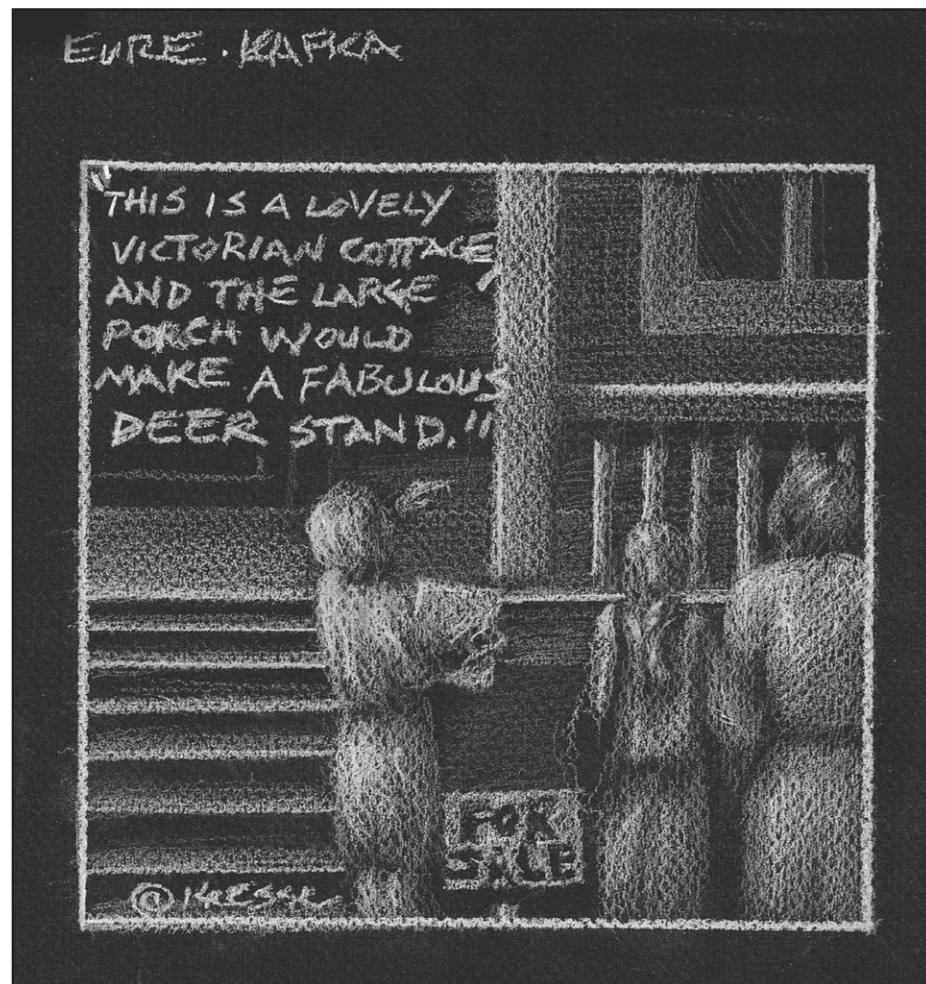 EURE·KAFKA
"THIS IS A LOVELY
VICTORIAN COTTAGE,
AND THE LARGE
PORCH WOULD
MAKE A FABULOUS
DEER STAND."
FOR
SALE
©